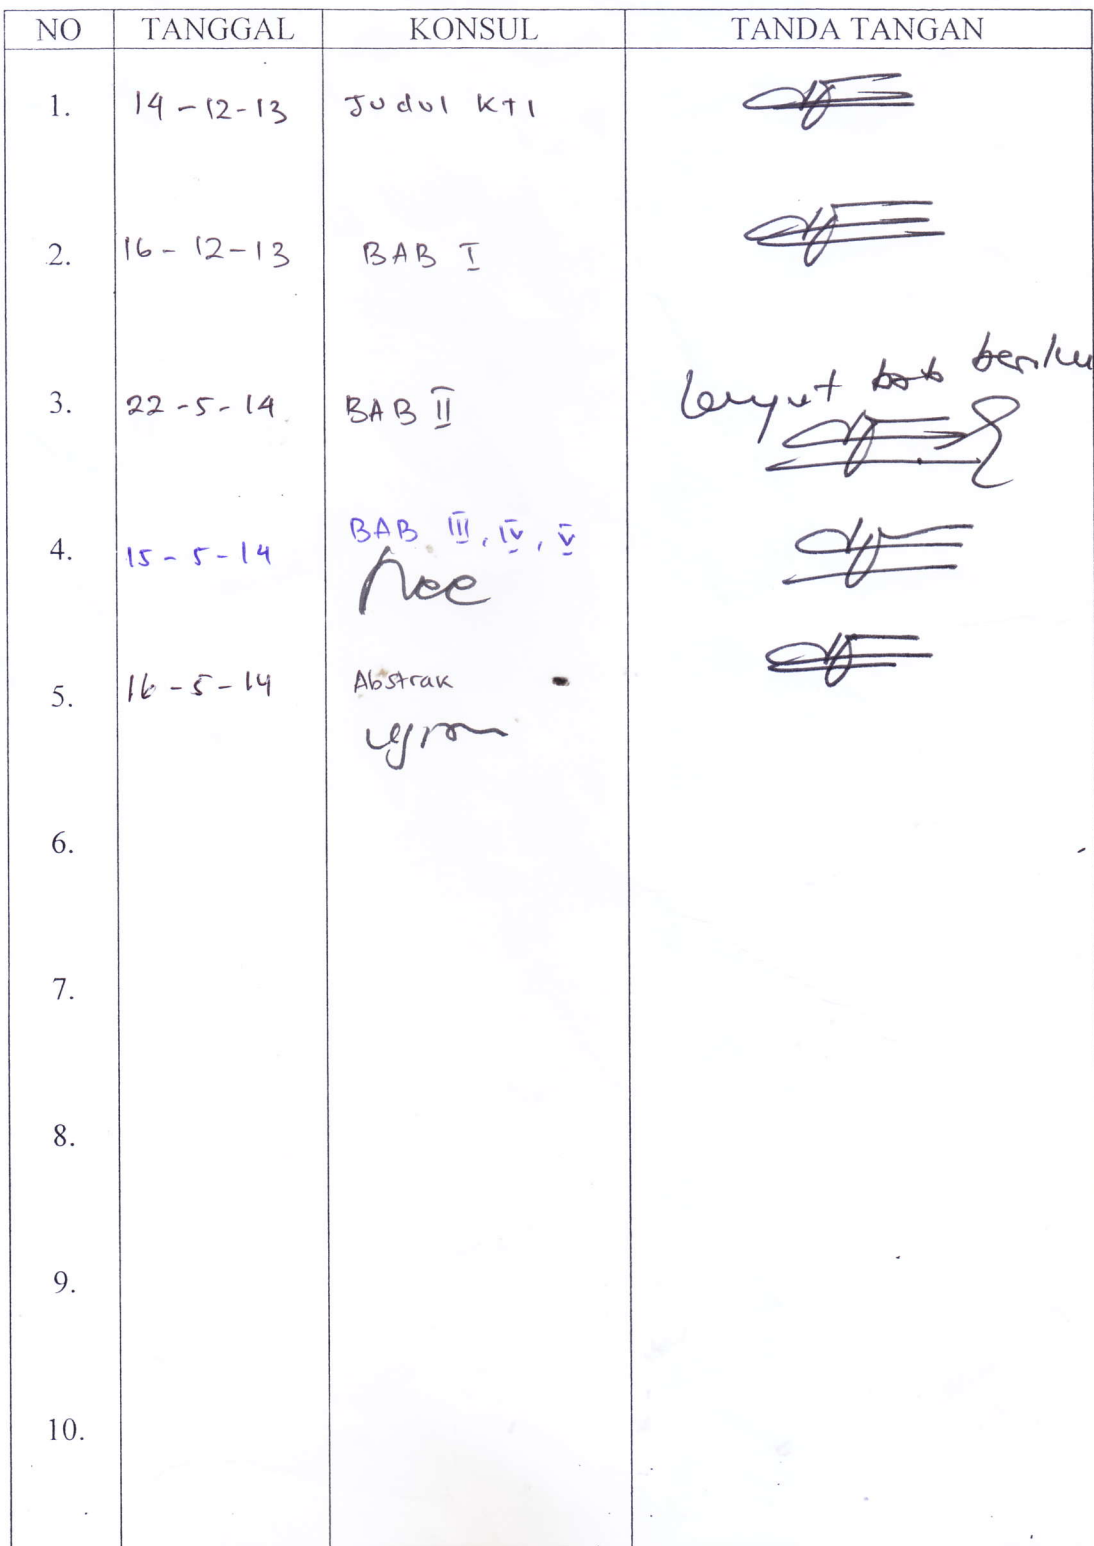 NO TANGGAL KONSUL TANDA TANGAN
1. 14-12-13 Judul KTI
2. 16-12-13 BAB I
bab beriku
3. 22-5-14 BAB II
4. 15-5-14 BAB III, IV, V
Acc
5. 16-5-14 Abstrak
6.
7.
8.
9.
10.